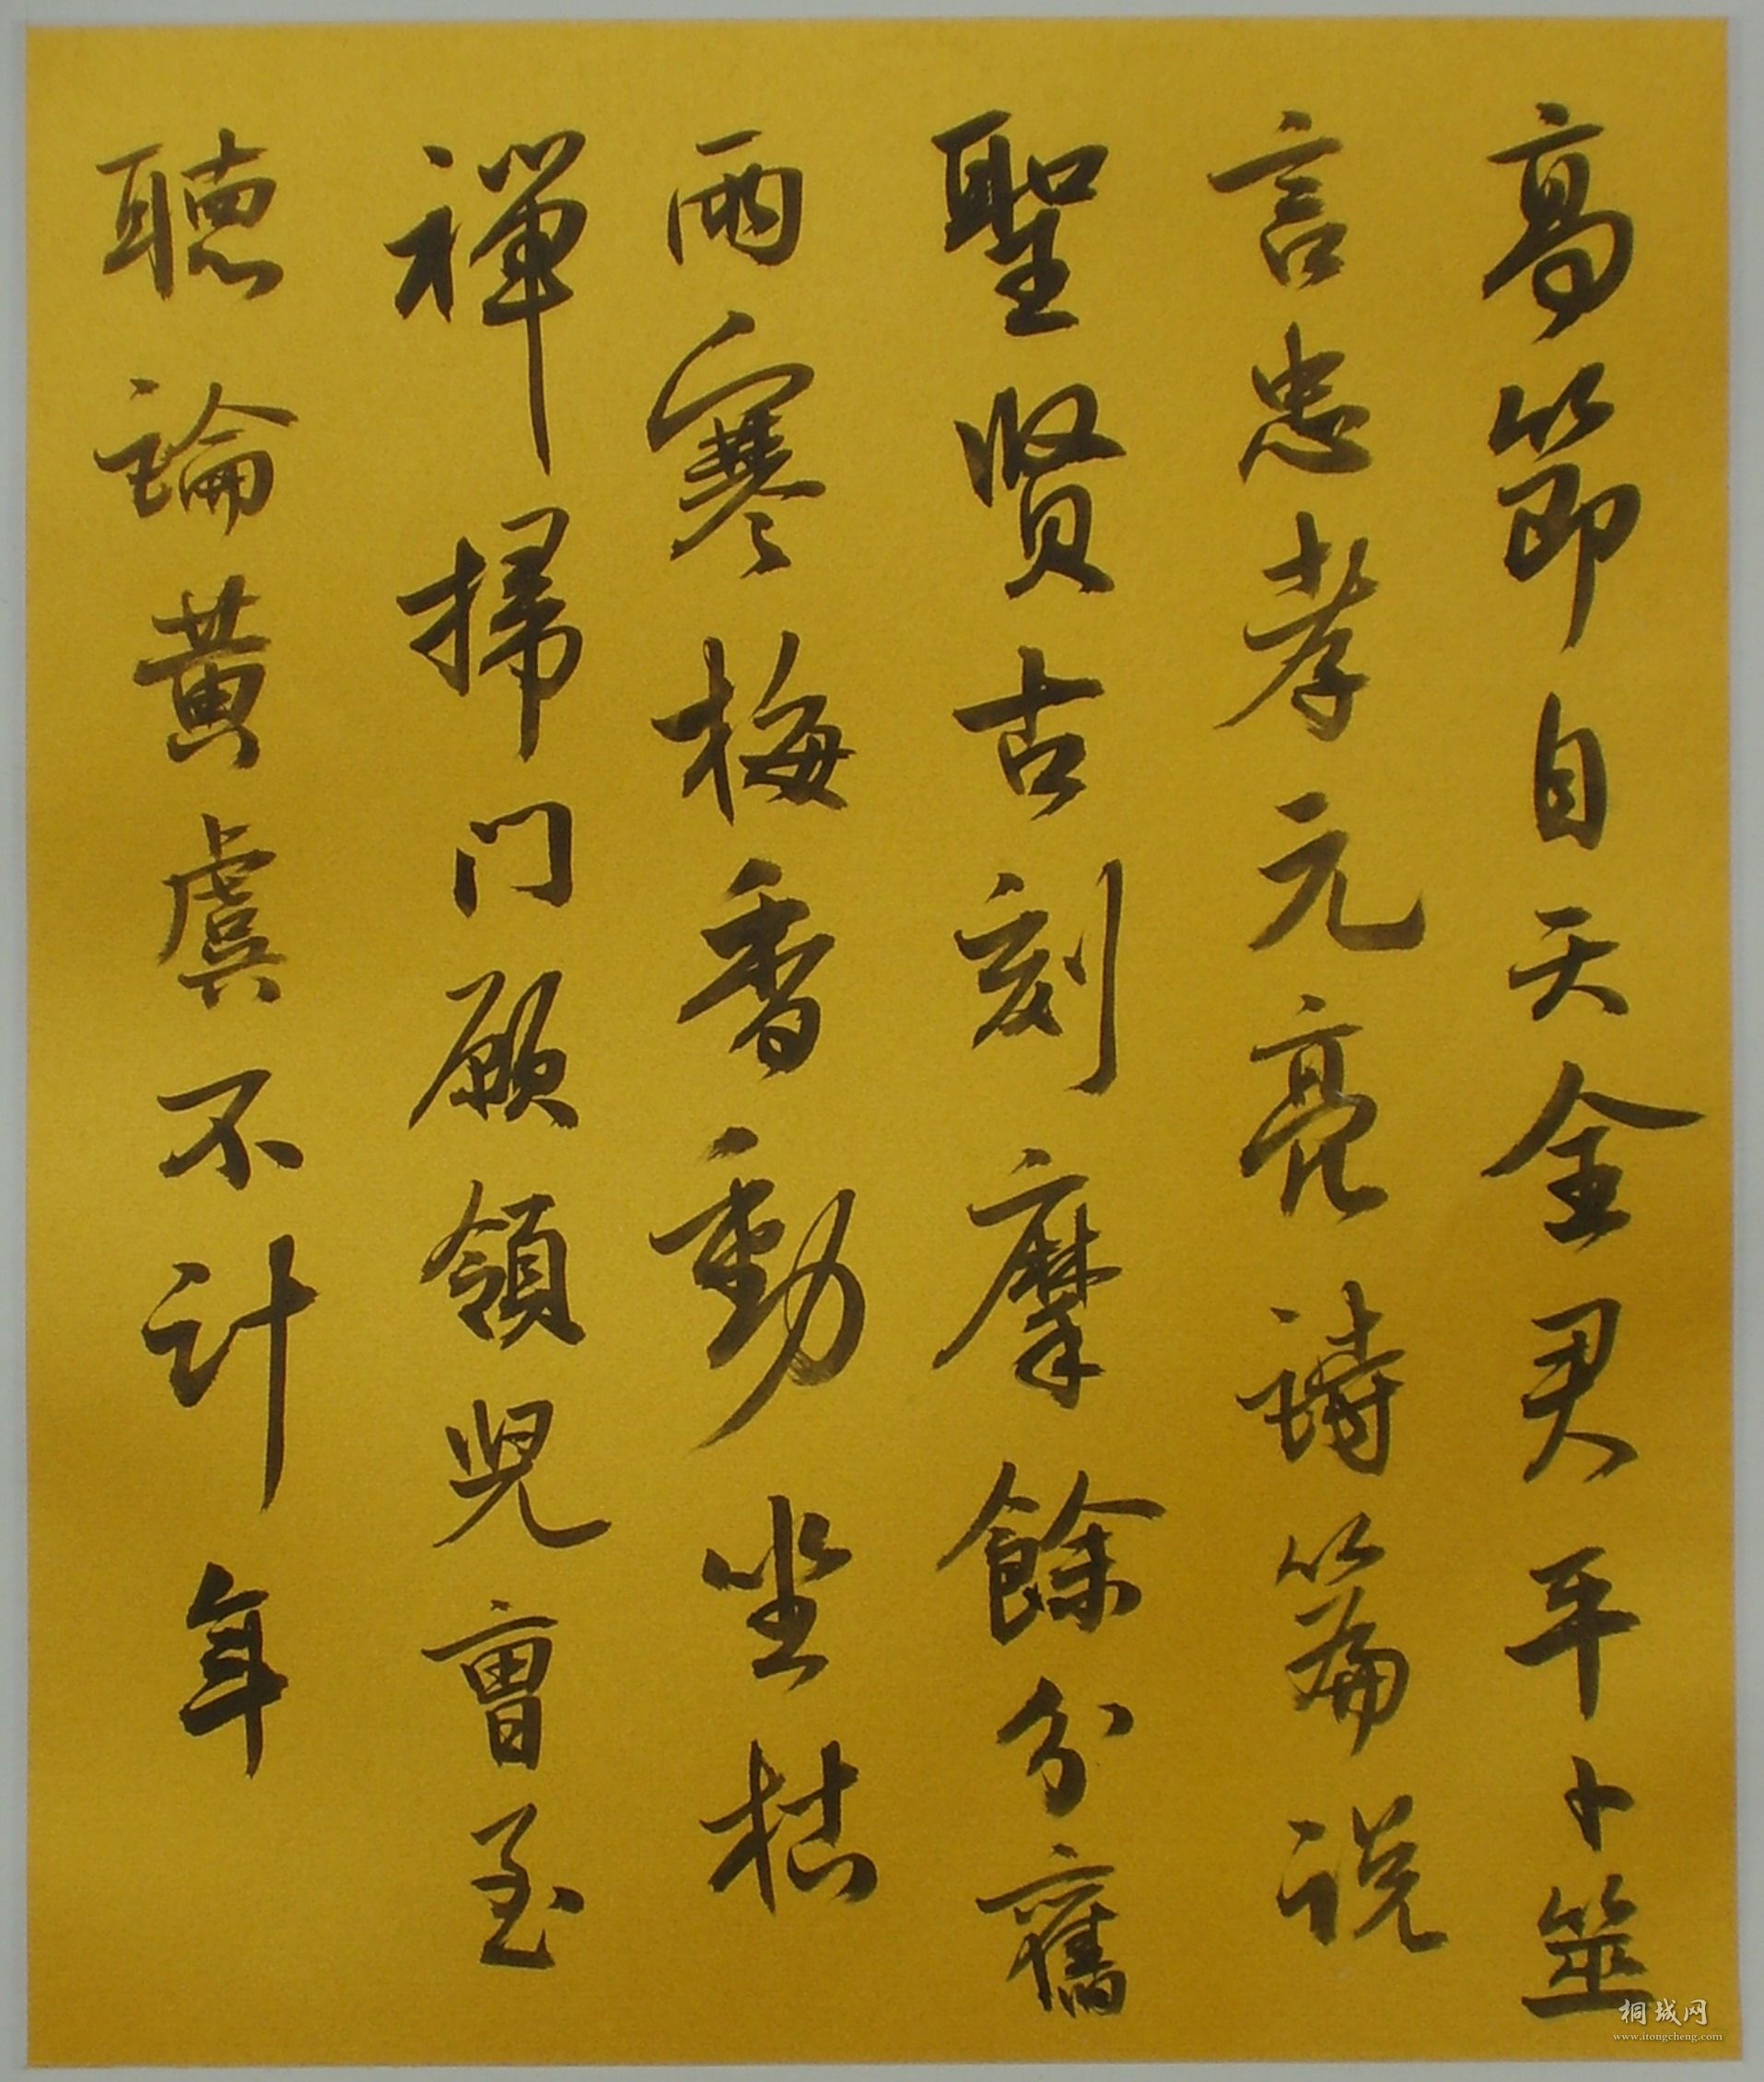 高節自天全君平卜筮
言忠孝元亮詩篇説
聖贤古刻摩餘分舊
雨寒梅香動坐枯
禪掃门願領兒曹至
聽論黄虞不计年
桐城网
www.itongcheng.com